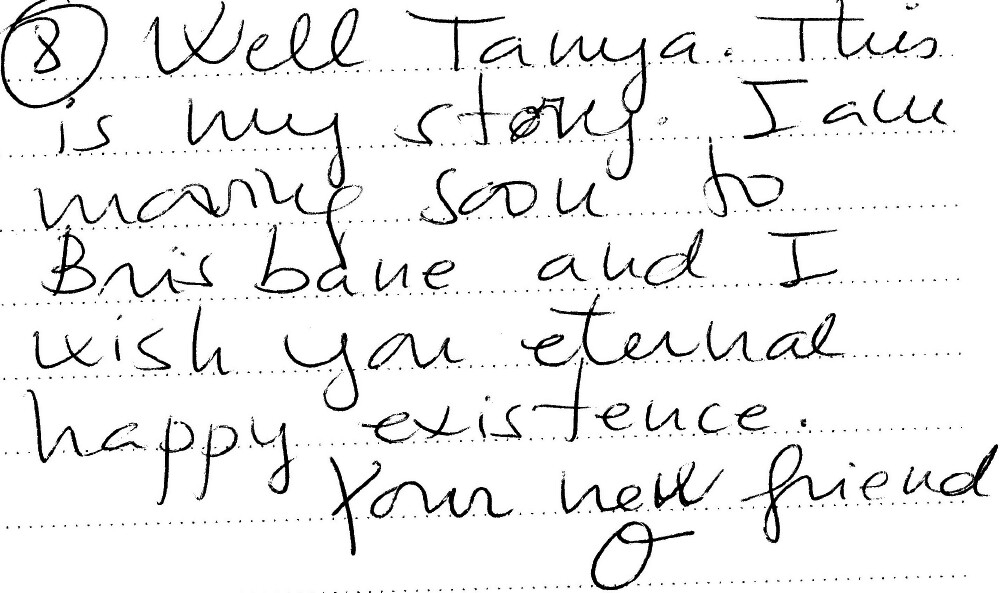 8 Well Tanya. This
is my story. I am
moving soon to
Brisbane and I
wish you eternal
happy existence.
Your new friend
O